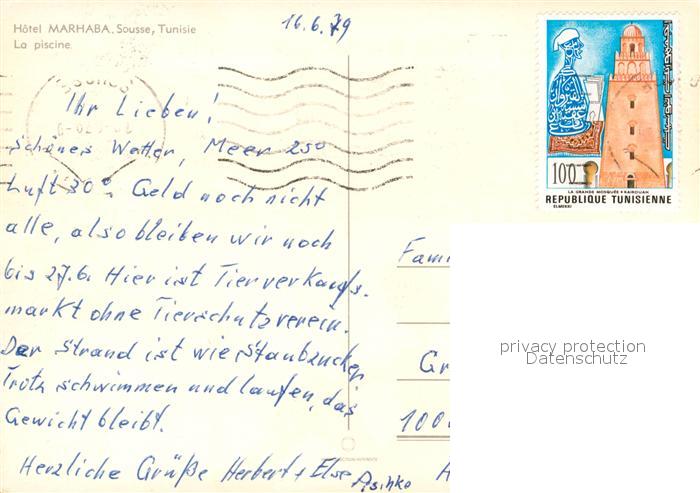 Hôtel MARHABA. Sousse, Tunisie
La piscine.
16.6.79
Ihr Lieben!
Schönes Wetter, Meer 25°
Luft 30°. Geld noch nicht
alle, also bleiben wir noch
bis 27.6. Hier ist Tierverkaufs-
markt ohne Tierschutzverein.
Der Strand ist wie Staubzucker
Trotz schwimmen und laufen, das
Gewicht bleibt.
Herzliche Grüße Herbert + Else
100
LA GRANDE MOSQUÉE • KAIROUAN
REPUBLIQUE TUNISIENNE
ELMEKKI
Fami
Gr
100
A
privacy protection
Datenschutz